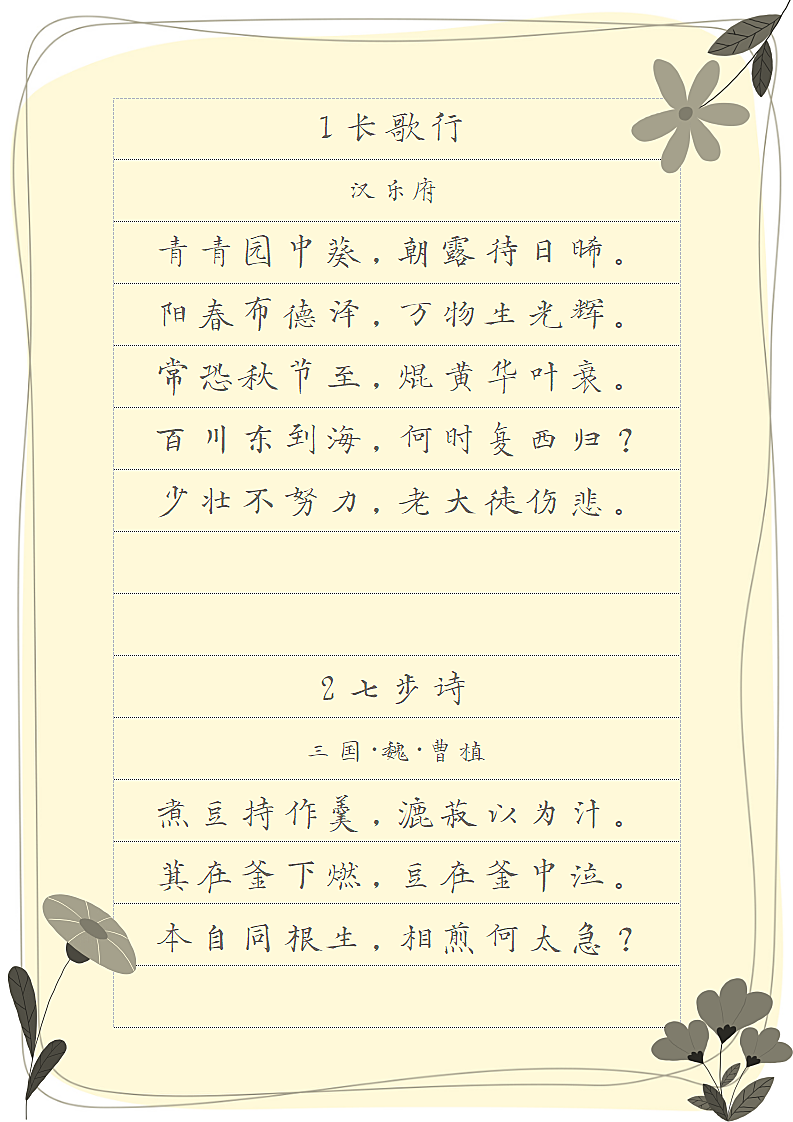 1长歌行
汉乐府
青青园中葵,朝露待日晞。
阳春布德泽,万物生光辉。
常恐秋节至,焜黄华叶衰。
百川东到海,何时复西归?
少壮不努力,老大徒伤悲。
2七步诗
三国·魏·曹植
煮豆持作羹,漉菽以为汁。
萁在釜下燃,豆在釜中泣。
本自同根生,相煎何太急?